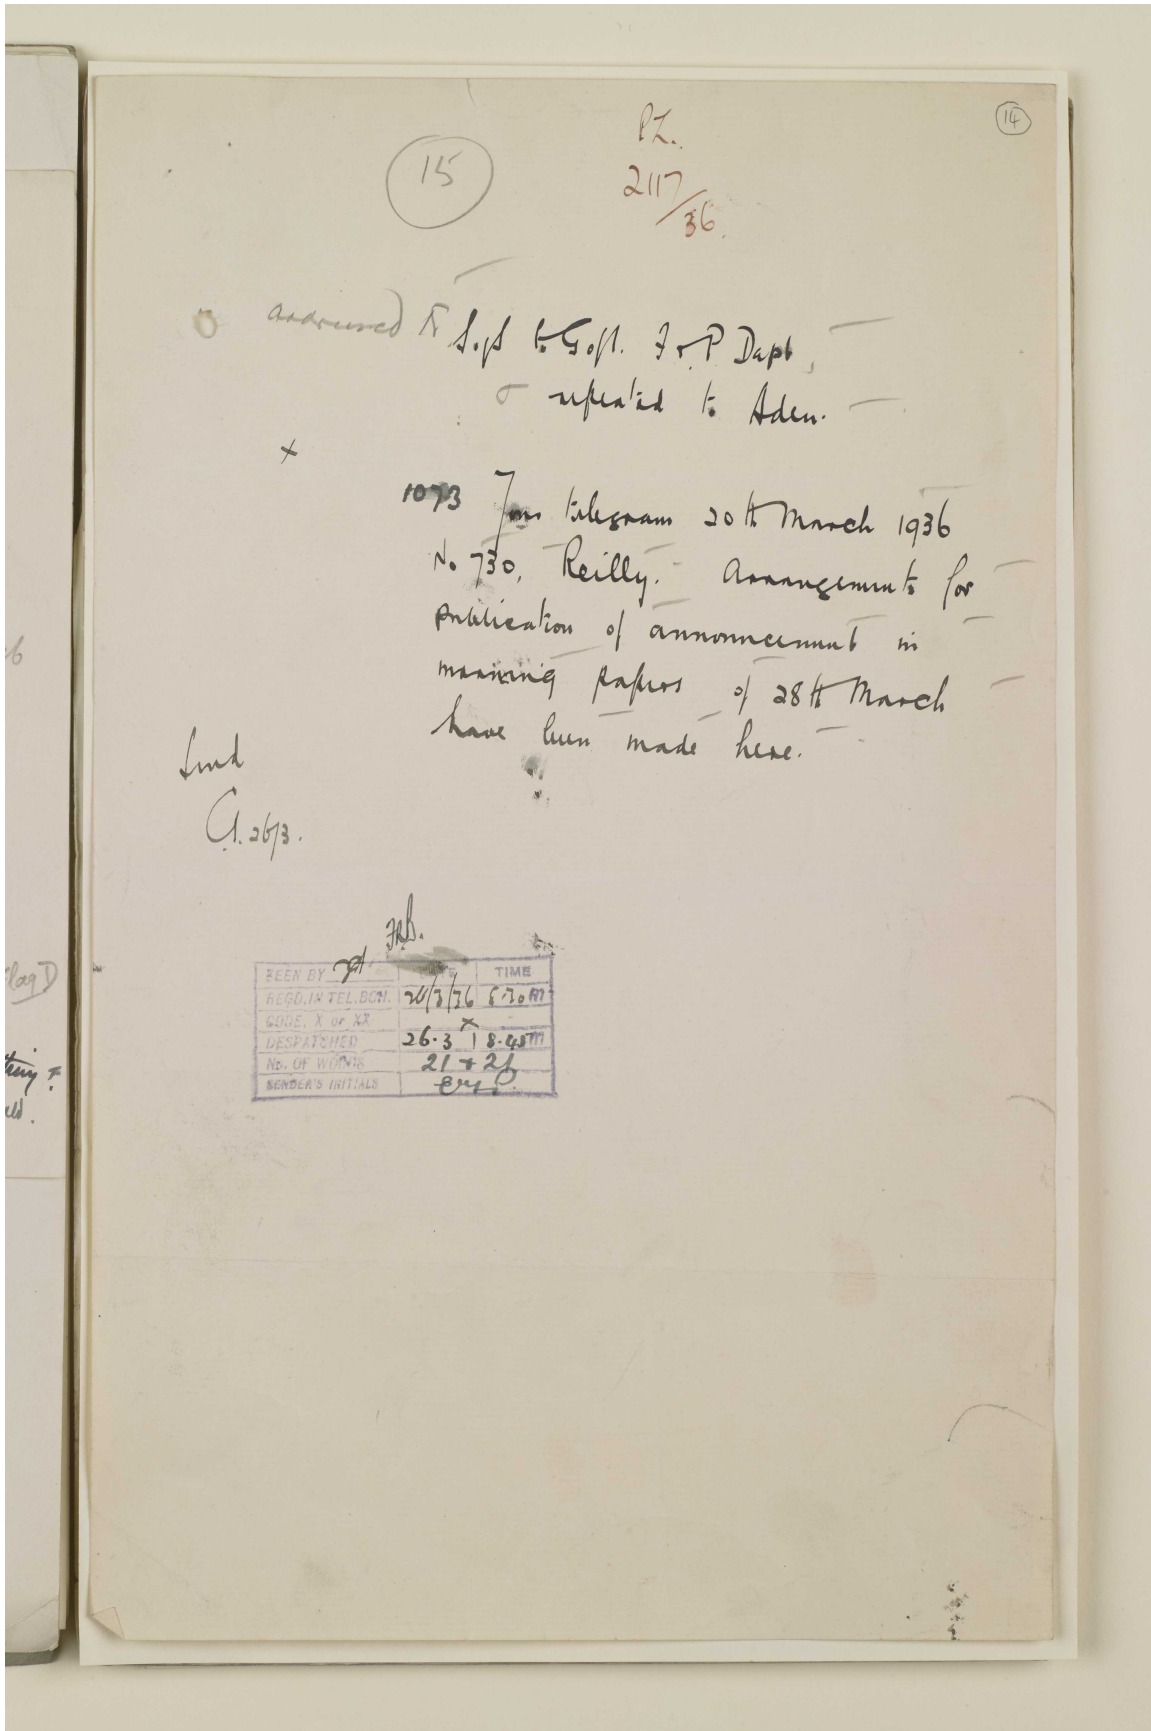 14
15
P.Z.
2117/36.
addressed to S. of S. to Govt. F. & P. Dept,
& repeated to Aden.
x
1073 Your telegram 20th March 1936
No 730, Reilly. Arrangements for
publication of announcement in
morning papers of 28th March
have been made here.
Send
26/3.
SEEN BY DATE TIME
REGD. IN TEL. BCH. /3/36
CODE, X or XX x
DESPATCHED 26.3 8.45
NO. OF WORDS 21 + 21
SENDER'S INITIALS
Flag D